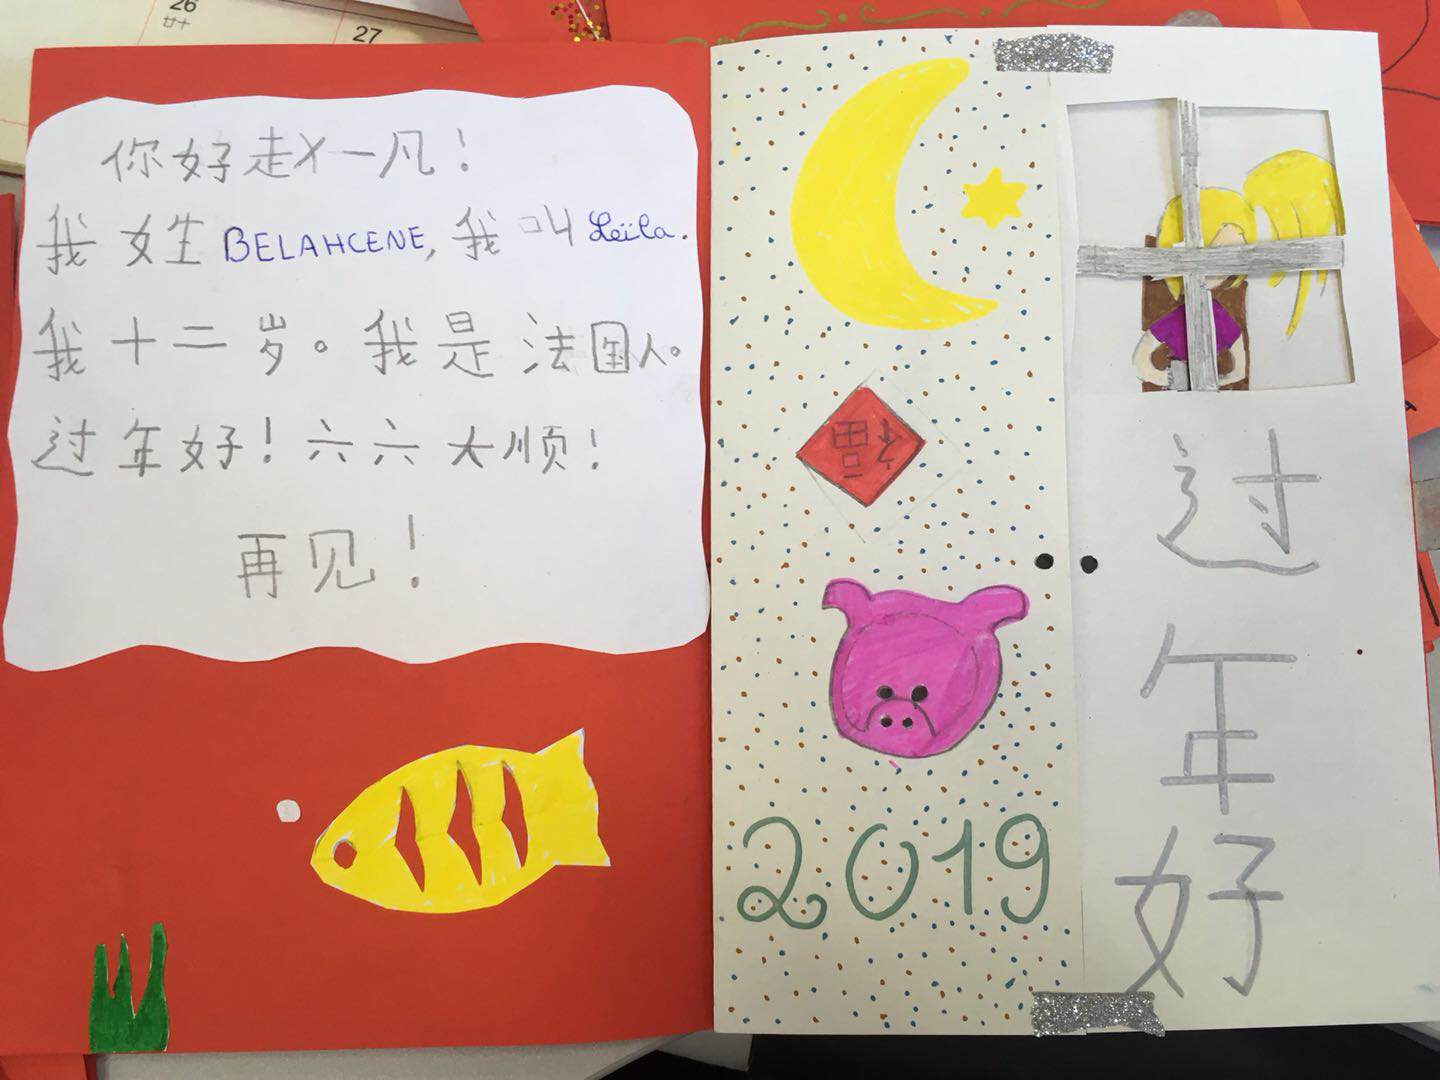 26
廿十
27
你好赵一凡!
我 女生 BELAHCENE, 我 叫 Leïla.
我 十 二 岁。我 是 法 国 人。
过 年 好! 六 六 大 顺!
再 见!
福
2019
过
年
好